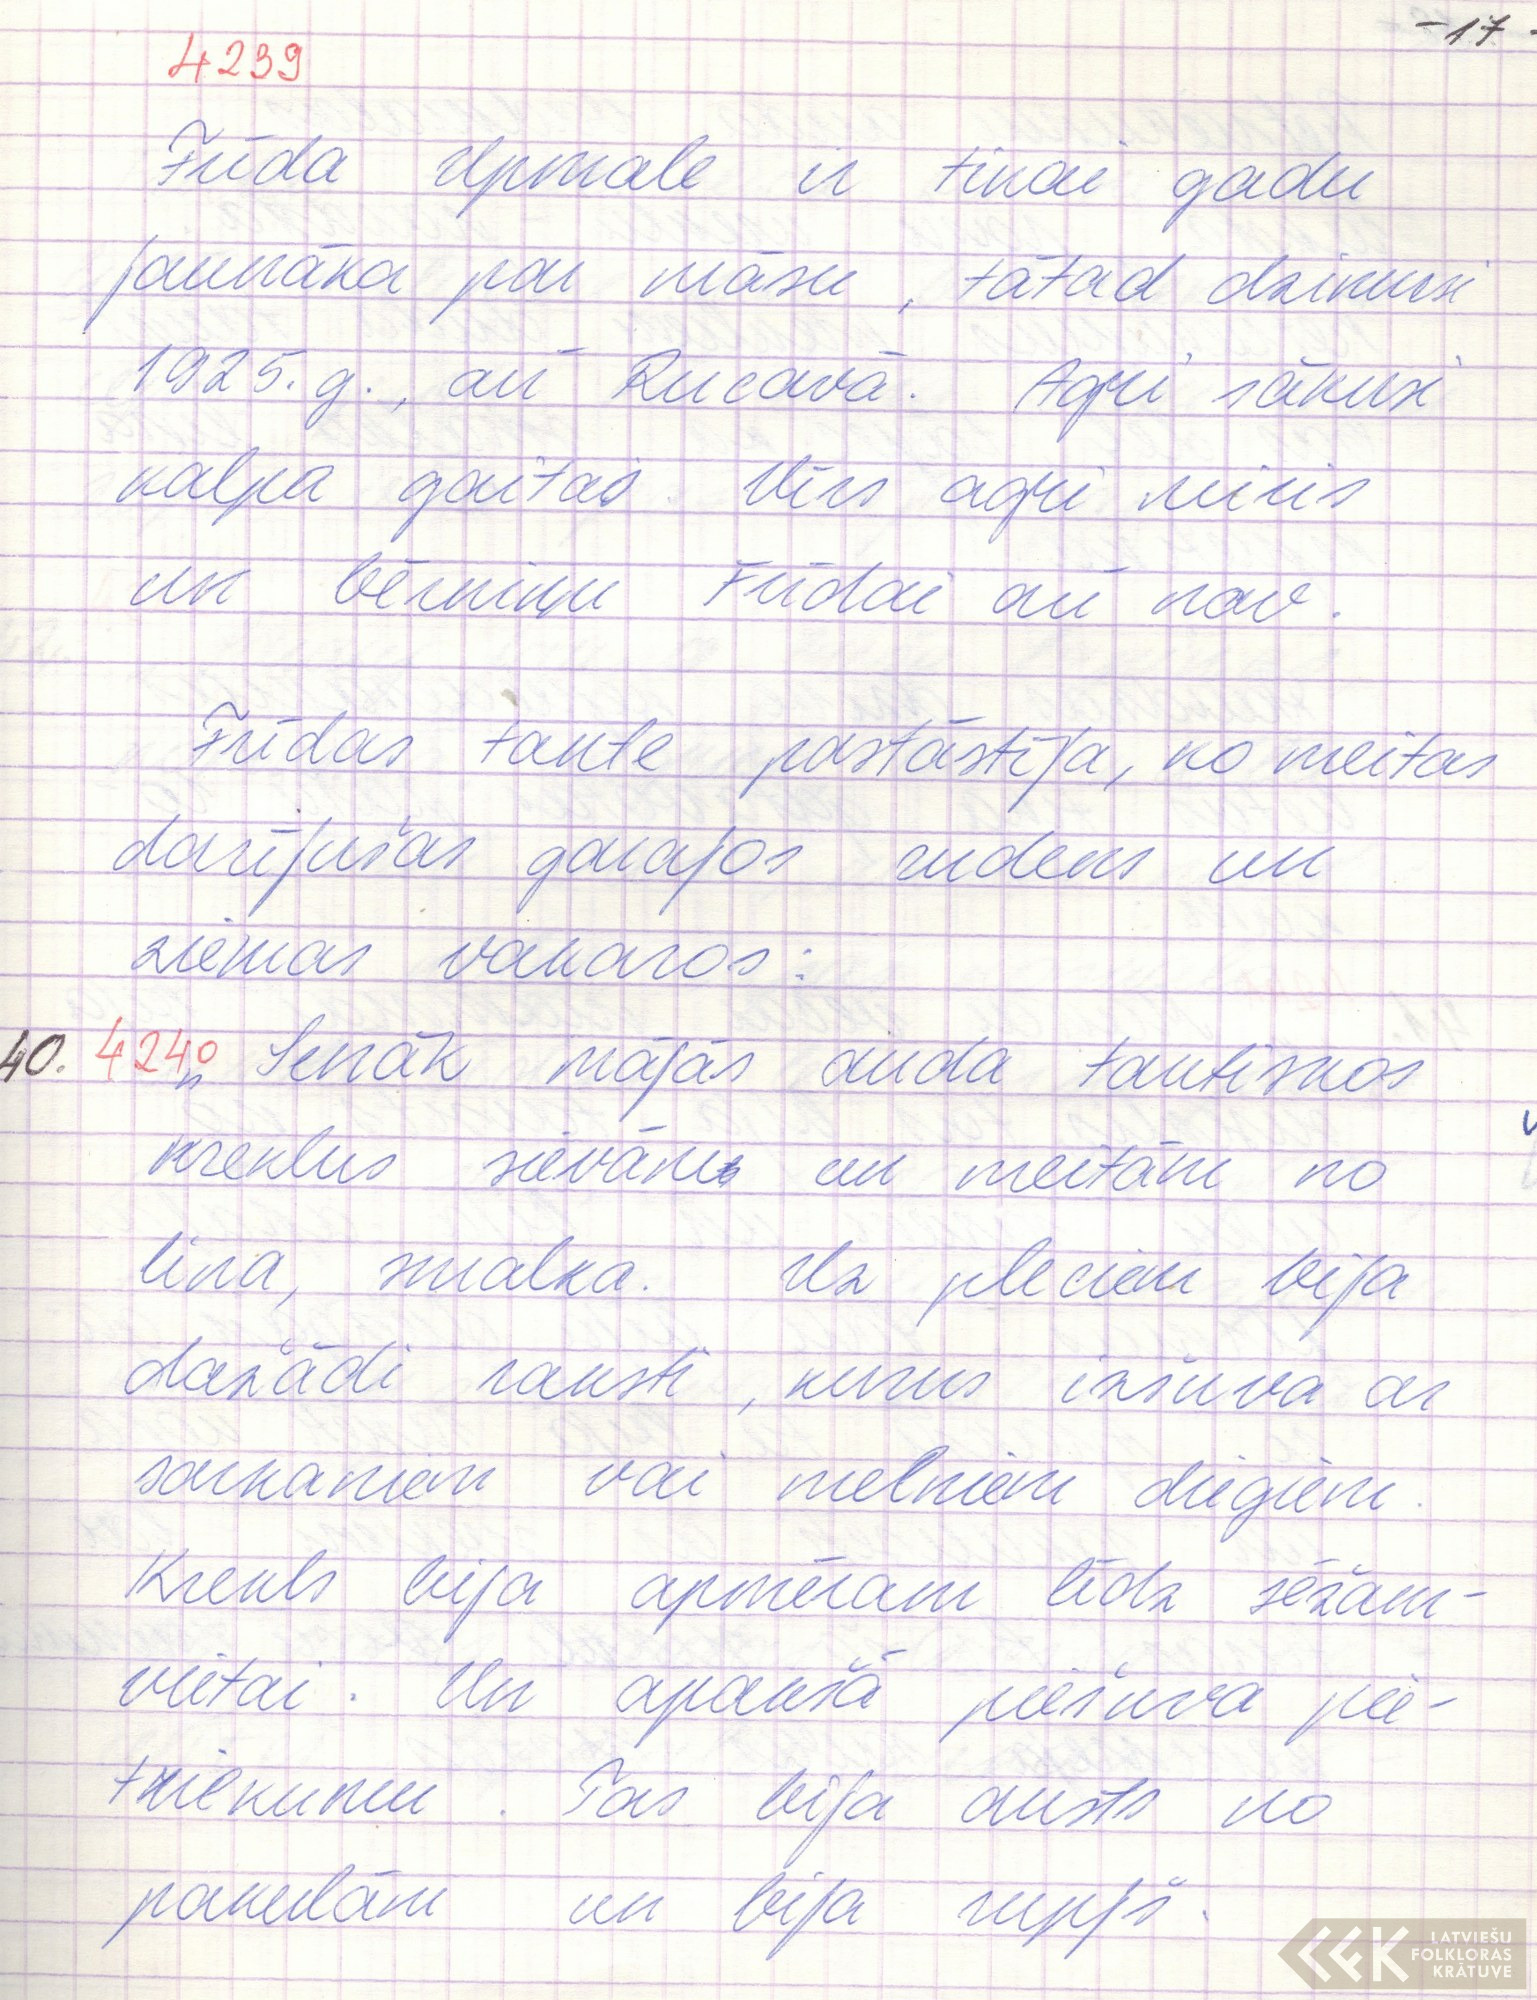 -17-
4239
Frīda Upmale ir tikai gadu
jaunāka par māsu, tātad dzimusi
1925. g., arī Rucavā. Agri sākusi
kalpa gaitas. Vīrs agri miris
un bērniņu Frīdai arī nav.
Frīdas tante pastāstīja, ko meitas
darījušas garajos rudens un
ziemas vakaros:
40. 4240 " Senāk mājās auda tautiskos
kreklus sievām un meitām no
lina, smalka. Uz pleciem bija
dažādi raksti, kurus izšuva ar
sarkaniem vai melniem diegiem.
Krekls bija apmēram līdz sēžam-
vietai. Un apakšā piešuva pie-
tniekumu. Tas bija austs no
pakulām un bija rupjš.
LATVIEŠU
FOLKLORAS
KRĀTUVE